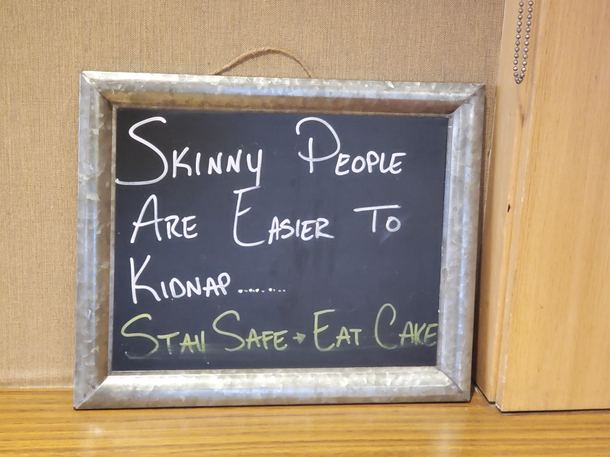 Skinny People
Are Easier To
Kidnap.........
Stay Safe + Eat Cake